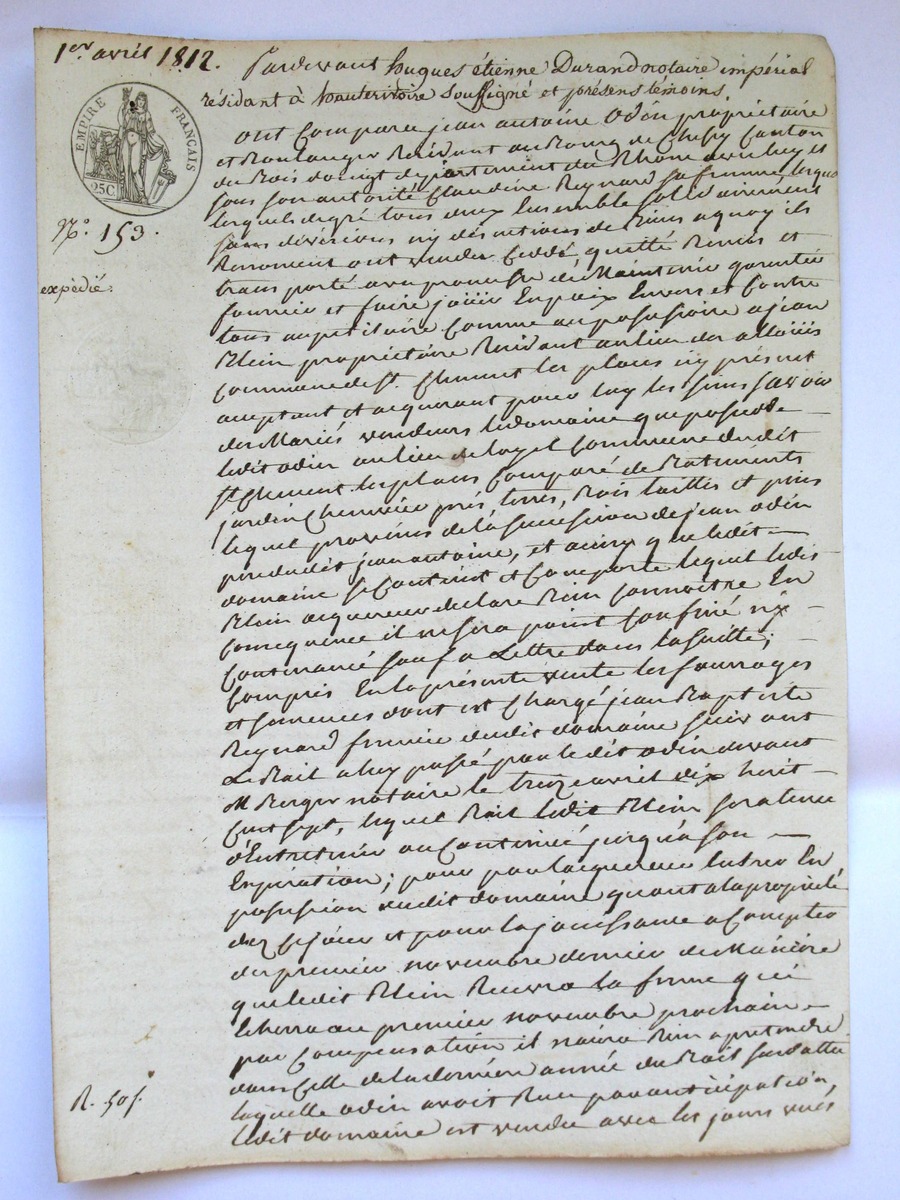 1er avril 1812. Pardevant hugues étienne Durand notaire impérial
résidant à hauterivoire soussigné et présens témoins
EMPIRE FRANÇAIS
25C
No. 153.
expédié.
ont comparu jean antoine odin propriétaire
et Boulanger Résidant au Bourg de Chessy Canton
du Bois doingt département du Rhône
sous son autorité Claudine Reynard sa femme,
lesquels de gré tous deux Ensemble solidairement
sans division ny discution de Biens a quoy ils
Renoncent ont vendu Ceddé, quitté Remis et
transporté avec promesse de Maintenir garantir
fournir et faire jouir En paix Envers et Contre
tous au petitoire Comme au possessoire a jean
Blein propriétaire Résidant au lieu des
Commune de St. Clément les places icy présent
aceptant et acquerant pour luy les siens savoir
des Mariés vendeurs le domaine que possede
ledit odin au lieu de Commune dudit
St Clement les places Composé de Batiments
jardin Cheneviere prés, terres, Bois taillis et pins
lequel provenus de la succession de jean odin
pere dudit jean antoine, et ainsy que ledit
domaine se Contient et Comporte lequel ledit
Blein acquereur declare Bien Connoitre En
Consequence il ne sera point Confiné ny
Contenancé sauf a Lettre dans la suitte;
Compris En la présente vente les fourrages
et semences dont est Chargé jean Baptiste
Reynard fermier dudit domaine suivant
Le Bail a luy passé par ledit odin devant
M Berger notaire le treize avril dix huit
Cent sept, lequel Bail ledit Blein sera tenu
d'Entretenir ou Continué jusqu'a son
Expiration; pour par lacquereur Entrer En
possession dudit domaine quant a la propriété
dez Ce jour et pour la jouissance a Compter
du premier novembre dernier de Maniere
que ledit Blein Recevra la ferme qui
Echerra au premier novembre prochain
par Compensation il n'aura Rien a pretendre
dans Celle de la derniere année du Bail
laquelle odin avoit Reçu par anticipation,
ledit domaine est vendu avec les jours vues
R. 50f.